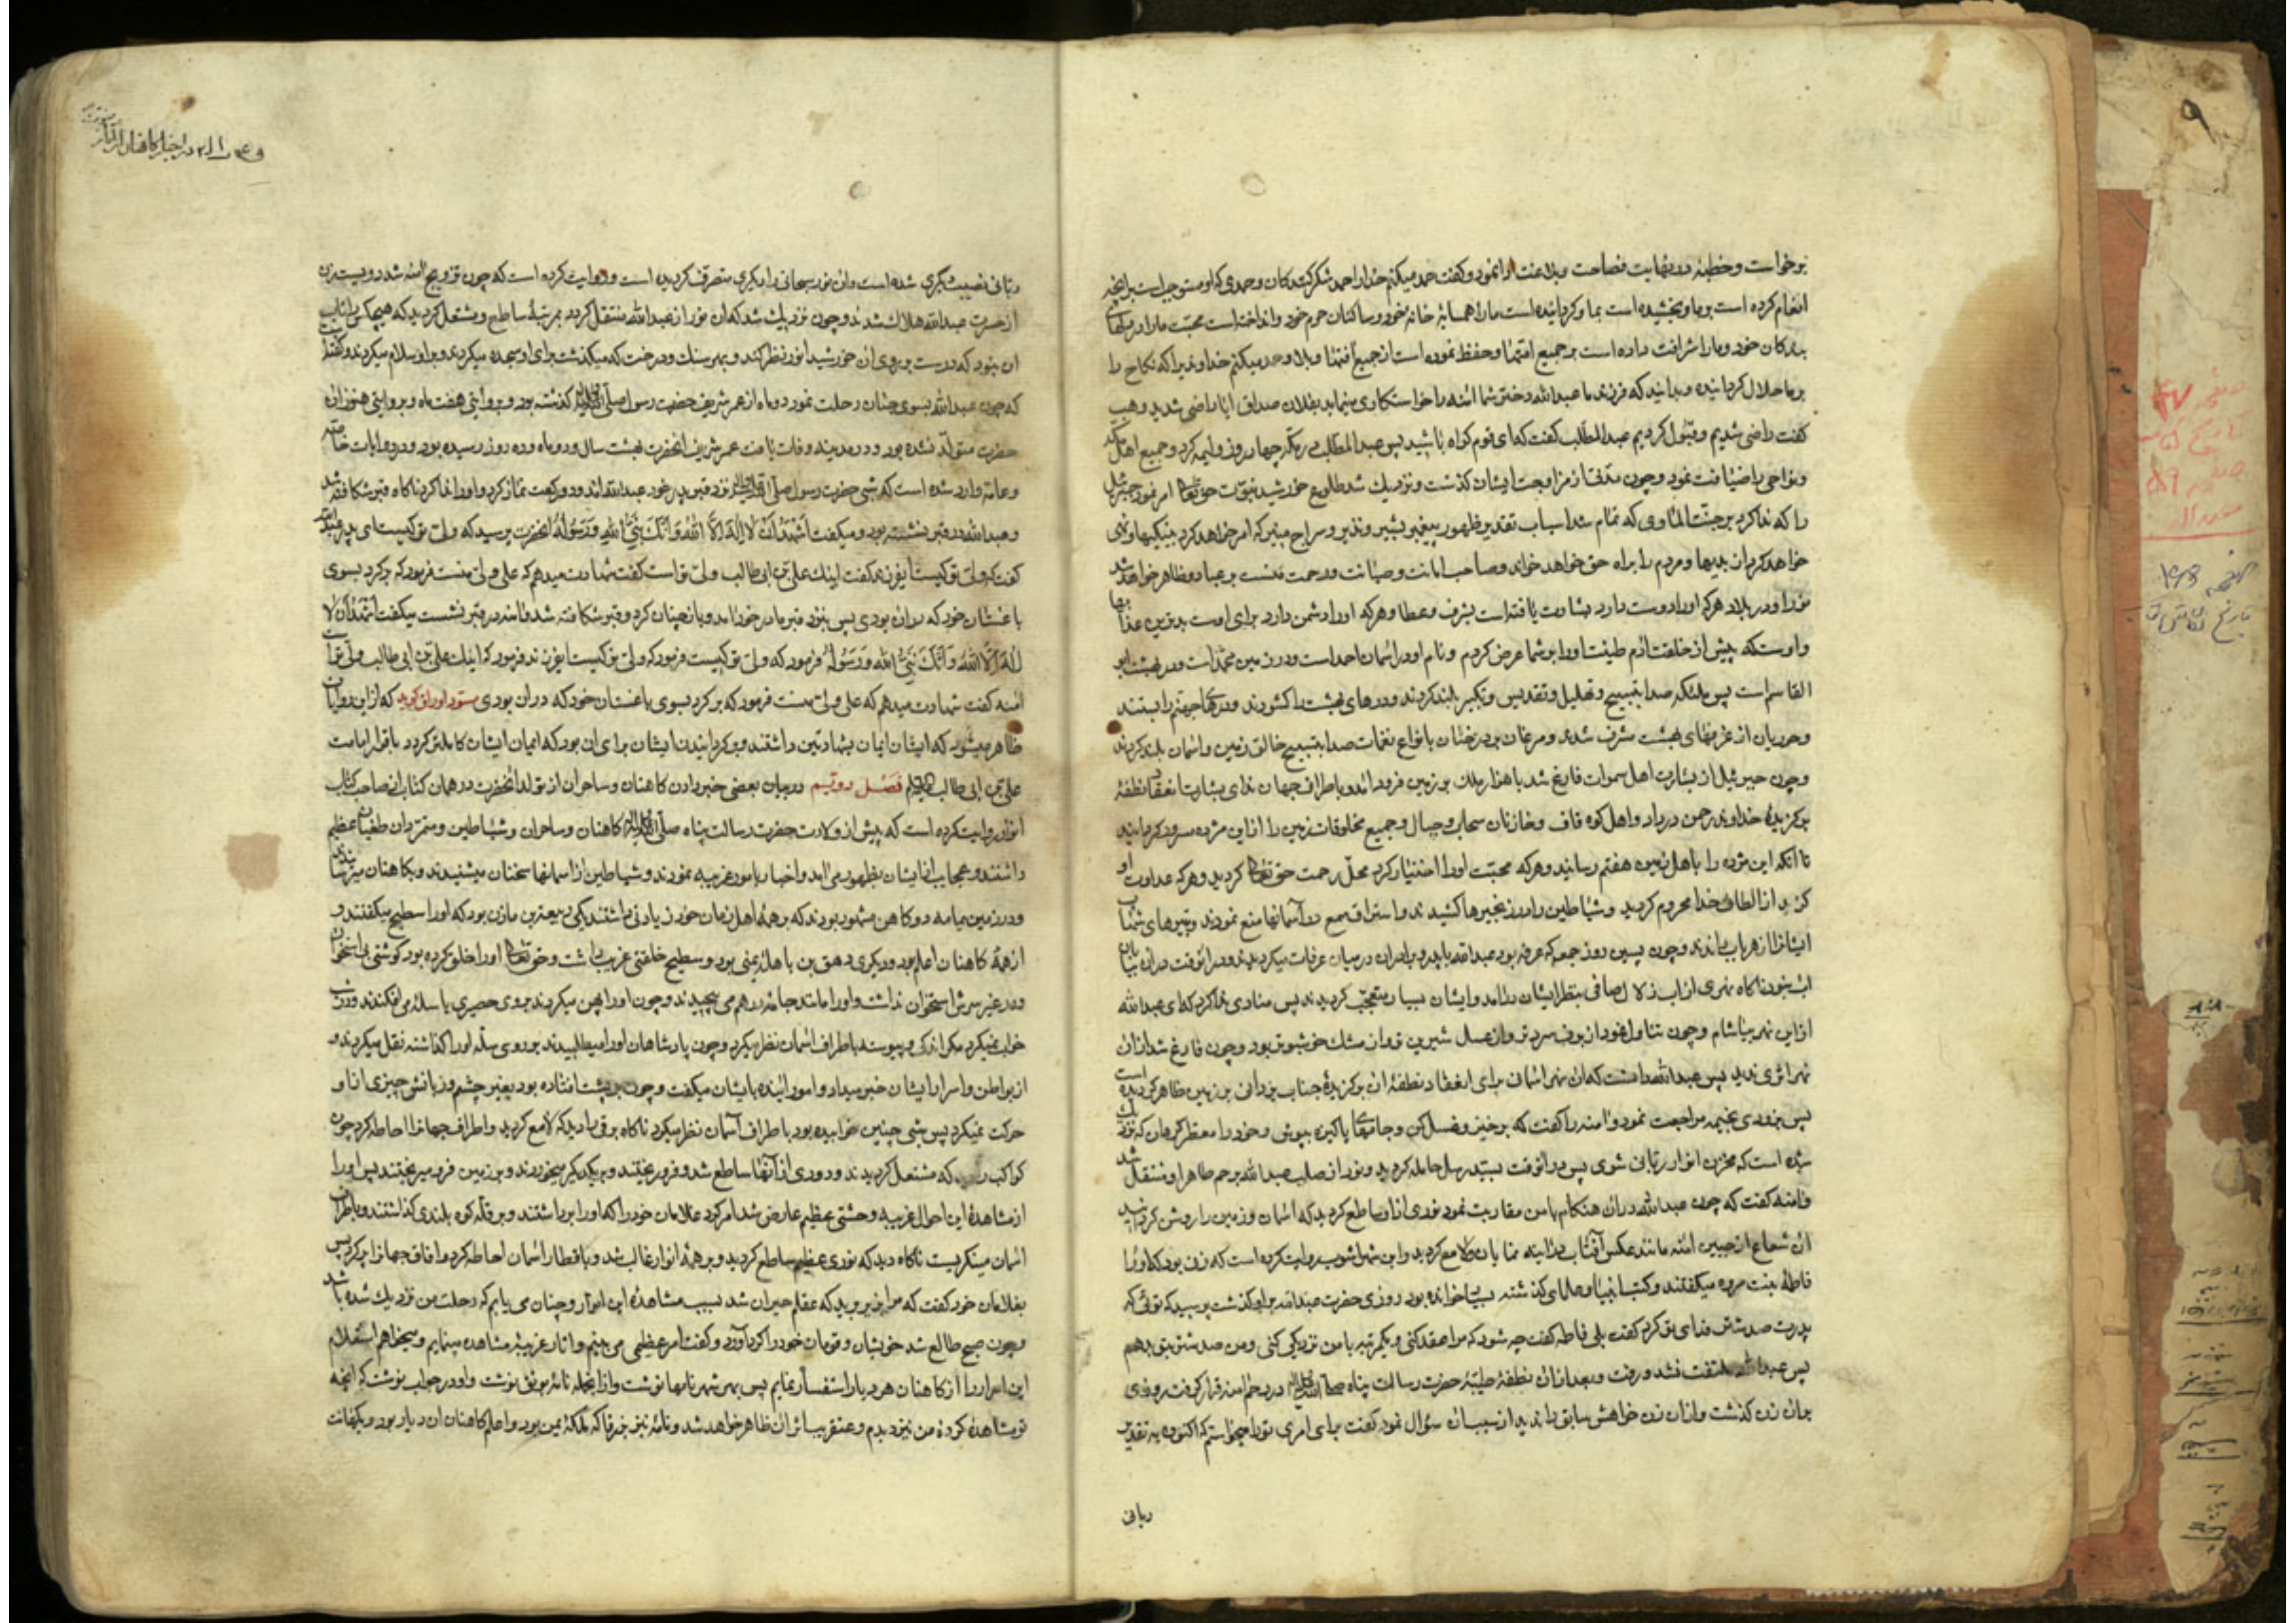 برخواست و خطبهٔ در نهایت فصاحت و بلاغت ادا نمود و گفت حمد میکنم خدا را حمد شکرکنندکان و حمدی که او مستوجب است بر آنچه
انعام کرده است بر ما و بخشیده است بما و کردانیده است ما را همسایهٔ خانهٔ خود و ساکنان حرم خود و انداخته است محبت ما را در دلهای
بندکان خود و ما را شرافت داده است بر جمیع امتها و حفظ نموده است از جمیع آفتها و بلاها و حمد میکنم خداوندیرا که نکاح را
بر ما حلال کردانیده و بدانید که فرزند ما عبدالله دختر شما آمنه را خواستکاری مینماید بفلان صداق ایا راضی شدید وهب
کفت راضی شدیم و قبول کردیم عبدالمطلب کفت که ای قوم کواه باشید پس عبدالمطلب در مکه چهار روز ولیمه کرد و جمیع اهل مکه
و نواحی را ضیافت نمود و چون مدتی از مزاوجت ایشان کذشت و نزدیک شد طلوع خورشید نبوت حق تعالی امر نمود جبرئیل
را که ندا کرد بر جنت الماوی که تمام شد اسباب تقدیر ظهور پیغمبر بشیر و نذیر و سراج منیر که امر خواهد کرد بنیکیها و نهی
خواهد کرد از بدیها و مردم را براه حق خواهد خواند و صاحب امانت و صیانت و رحمت منست بر عباد و ظاهر خواهد شد
نور او در بلاد هر که او را دوست دارد بشارت یافته است بشرف و عطا و هر که او را دشمن دارد برای اوست بدترین عذابها
و اوست که پیش از خلقت آدم طینت او را بر شما عرض کردم و نام او در آسمان احمد است و در زمین محمد است و در بهشت ابو
القاسم است پس ملئکه صدا بتسبیح و تهلیل و تقدیس و تکبیر بلند کردند و درهای بهشت را کشودند و درهای جهنم را بستند
و حوریان از غرفهای بهشت مشرف شدند و مرغان بر درختان بانواع نغمات صدا بتسبیح خالق زمین و آسمان بلند کردند
و چون جبرئیل از بشارت اهل سموات فارغ شد با هزار ملک بر زمین فرود آمد و باطراف جهان ندای بشارت انعقاد نطفهٔ
برکزیدهٔ خداوند رحمن در داد و اهل کوه قاف و خازنان سحاب و جبال و جمیع مخلوقات زمین را از این مژده مسرور کردانید
تا آنکه این مژده را باهل زمین هفتم رسانید و هر که محبت او را اختیار کرد محل رحمت حق تعالی کردید و هر که عداوت او
کزید از الطاف خدا محروم کردید و شیاطین را در زنجیرها کشیدند و از استراق سمع در آسمانها منع نمودند و تیرهای شهاب
ایشانرا از هر باب راندند و چون پسین روز جمعه که عرفه بود عبدالله با پدر و برادران در میان عرفات میکردیدند و در آنوقت در آن بیابان
آب نبود ناکاه نهری از آب زلال صافی بنظر ایشان درآمد و ایشان بسیار متعجب کردیدند پس منادی ندا کرد که ای عبدالله
از این نهر بیاشام و چون تناول نمود از برف سردتر و از عسل شیرین تر و از مشک خوشبوتر بود و چون فارغ شد از آن
نهر اثری ندید پس عبدالله دانست که آن نهر آسمانی برای انعقاد نطفهٔ آن برکزیدهٔ جناب یزدانی بر زمین ظاهر کردیده است
پس بزودی بخیمه مراجعت نمود و آمنه را کفت که برخیز و غسل کن و جامهای پاکیزه بپوش و خود را معطر کردان که نزدیک
شده است که مخزن انوار ربانی شوی پس در آنوقت بسید رسل حامله کردید و نور از صلب عبدالله برحم طاهر او منتقل شد
و آمنه کفت که چون عبدالله در آن هنکام با من مقاربت نمود نوری از او ساطع کردید که آسمان و زمین را روشن کردانید
آن شعاع از جبین آمنه مانند عکس آفتاب در آینه نمایان و لامع کردید و ابن شهراشوب روایت کرده است که زنی بود که او را
فاطمهٔ بنت مره میکفتند و کتب انبیا و علمای کذشته بسیار خوانده بود روزی حضرت عبدالله بر او کذشت پرسید که توئی که
پدرت صد شتر فدای تو کرد کفت بلی فاطمه کفت چه شود که مرا عقد کنی و یکمرتبه با من نزدیکی کنی و من صد شتر بتو بدهم
پس عبدالله ملتفت نشد و رفت و بعد از آن نطفهٔ طیبهٔ حضرت رسالت پناه صلی الله علیه و آله در رحم آمنه قرار کرفت روزی
بر آن زن کذشت و از آن زن خواهش سابق را ندید از سبب آن سؤال نمود کفت برای امری ترا میخواستم که اکنون به تقدیر
ربانی
ورق ۲۱ در اخبار کاهنان از آثار
ربانی نصیب دیکری شده است و آن نور سبحانی را دیکری متصرف کردیده است و روایت کرده است که چون تزویج آمنه شد دویست زن
از حسرت عبدالله هلاک شدند و چون نزدیک شد که آن نور از عبدالله منتقل کردد بمرتبهٔ ساطع و مشتعل کردید که هیچکس را تاب
آن نبود که درست بر روی آن خورشید انور نظر کند و بهر سنک و درخت که میکذشت برای او سجده میکردند و بر او سلام میکردند و کفته‌اند
که چون عبدالله بسوی جنان رحلت نمود دو ماه از عمر شریف حضرت رسول صلی الله علیه و آله کذشته بود و بروایتی هفت ماه و بروایتی هنوز آن
حضرت متولد نشده بود و در مدینه وفات یافت عمر شریف آنحضرت بیست سال و دو ماه و ده روز رسیده بود و در روایات خاصه
و عامه وارد شده است که شبی حضرت رسول صلی الله علیه و آله نزد قبر پدر خود عبدالله آمد و دو رکعت نماز کرد و او را ندا کرد ناکاه قبر شکافته شد
و عبدالله در قبر نشسته بود و میکفت اَشْهَدُ اَنْ لا اِلهَ اِلَّا اللهُ وَاَنَّکَ نَبِیُّ اللهِ وَرَسُولُهُ آنحضرت پرسید که ولی تو کیست ای پدر عبدالله
کفت که ولی تو کیست ایفرزند کفت اینک علی بن ابی طالب ولی تو است کفت شهادت میدهم که علی ولی منست فرمود که برکرد بسوی
باغستان خود که در آن بودی پس بنزد قبر مادر خود آمد و بازچنان کرد و قبر شکافته شد و آمنه در قبر نشست میکفت اَشْهَدُ اَنْ لا
اِلهَ اِلَّا اللهُ وَاَنَّکَ نَبِیُّ اللهِ وَرَسُولُهُ فرمود که ولی تو کیست فرمود که ولی تو کیست ایفرزند فرمود که اینک علی بن ابی طالب ولی تو است
آمنه کفت شهادت میدهم که علی ولی منست فرمود که برکرد بسوی باغستان خود که در آن بودی مسود اوراق کوید که از این روایات
ظاهر میشود که ایشان ایمان بشهادتین داشتند و برکردانیدن ایشان برای آن بود که ایمان ایشان کاملتر کردد باقرار امامت
علی بن ابی طالب علیه السلام فصل دویم در بیان بعضی خبر دادن کاهنان و ساحران از تولد آنحضرت در همان کتاب از صاحب کتاب
انوار روایت کرده است که پیش از ولادت حضرت رسالت پناه صلی الله علیه و آله کاهنان و ساحران و شیاطین و متمردان طغیان عظیم
داشتند و عجایب از ایشان بظهور می آمد و اخبار بامور غریبه نمودند و شیاطین از آسمانها سخنان میشنیدند و بکاهنان میرسانیدند
و در زمین یمامه دو کاهن مشهور بودند که بر همهٔ اهل زمان خود زیادتی داشتند یکی ربیعة بن مازن بود که او را سطیح میکفتند و
از همهٔ کاهنان اعلم بود و دیکری وشق بن باهلهٔ یمنی بود و سطیح خلقتی غریب داشت و حق تعالی او را خلق کرده بود کوشتی بی استخوان
و در غیر سرش استخوان نداشت و او را مانند جامه در هم می پیچیدند و چون او را پهن میکردند بروی حصیری یا سله می افکندند و در شب
خواب نمیکرد مکر اندکی و پیوسته باطراف آسمان نظر میکرد و چون پادشاهان او را میطلبیدند بر روی سله او را کذاشته نقل میکردند و
از بواطن و اسرار ایشان خبر میداد و امور آینده بایشان میکفت و چون بر پشت افتاده بود بغیر چشم و زبانش چیزی از او
حرکت نمیکرد پس شبی چنین خوابیده بود باطراف آسمان نظر میکرد ناکاه برقی را دید که لامع کردید و اطراف جهانرا احاطه کرد چون
کواکب را دید که مشتعل کردیدند و دودی از آنها ساطع شد و فرو ریختند و بر یکدیکر میخوردند و بر زمین فرو میریختند پس او را
از مشاهدهٔ این احوال غریبه وحشتی عظیم عارض شد امر کرد غلامان خود را که او را برداشتند و بر قلهٔ کوه بلندی کذاشتند و باطراف
آسمان مینکریست ناکاه دید که نوری عظیم ساطع کردید و بر همهٔ انوار غالب شد و باقطار آسمان احاطه کرد و آفاق جهانرا پر کرد پس
بغلامان خود کفت که مرا بزیر برید که عقلم حیران شد بسبب مشاهدهٔ این انوار و چنان می یابم که رحلت من نزدیک شده باشد
و چون صبح طالع شد خویشان و قومان خود را کرد آورد و کفت امر عظیمی می بینم و آثار غریبهٔ مشاهده مینمایم و میخواهم استعلام
این اسرار را از کاهنان هر دیار استفسار نمایم پس بهر شهر نامها نوشت و از آنجمله نامهٔ بوشق نوشت و او در جواب نوشت که آنچه
تو مشاهده کردهٔ من نیز دیدم و عنقریب اثر آن ظاهر خواهد شد و نامهٔ نیز بزرقا که ملکهٔ یمن بود و اعلم کاهنان آن دیار بود و بکهانت